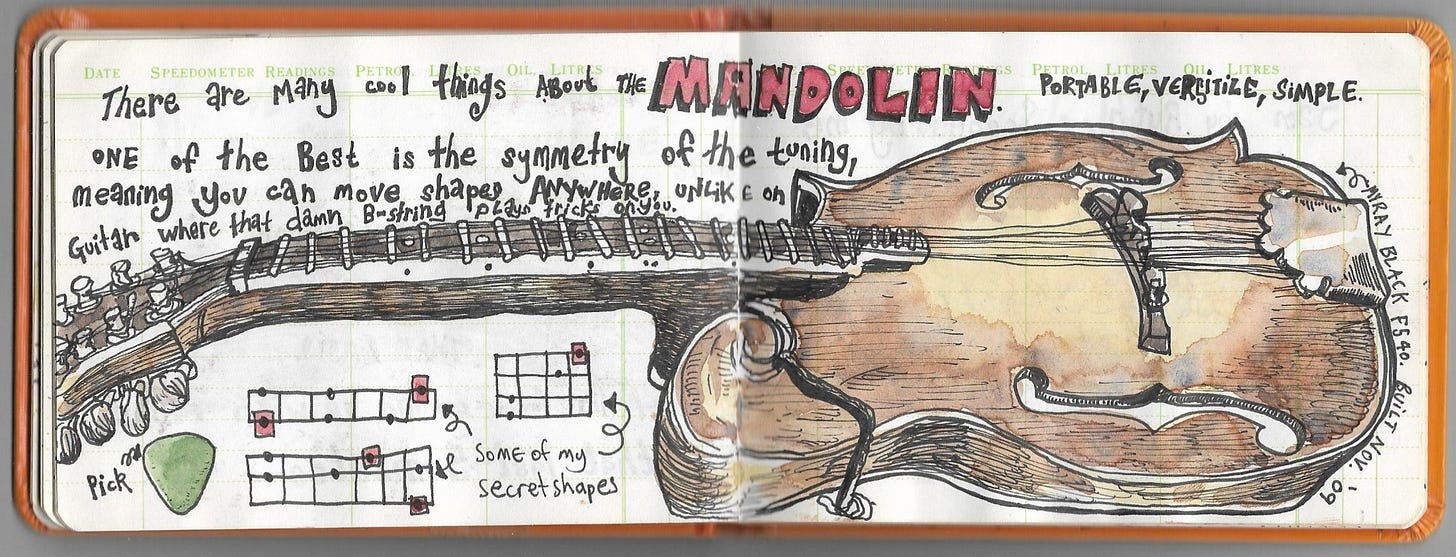 DATE SPEEDOMETER READINGS PETROL, LITRES OIL, LITRES SPEEDOMETER READINGS PETROL, LITRES OIL, LITRES
There are many cool things ABout THE MANDOLIN. PORTABLE, VERSITILE, SIMPLE.
ONE of the Best is the symmetry of the tuning,
meaning you can move shapes ANYWHERE, UNLIKE on
Guitar where that damn B-string plays tricks on you.
MIRAY BLACK F540. BUILT NOV. '09
Pick
Some of my
secret shapes